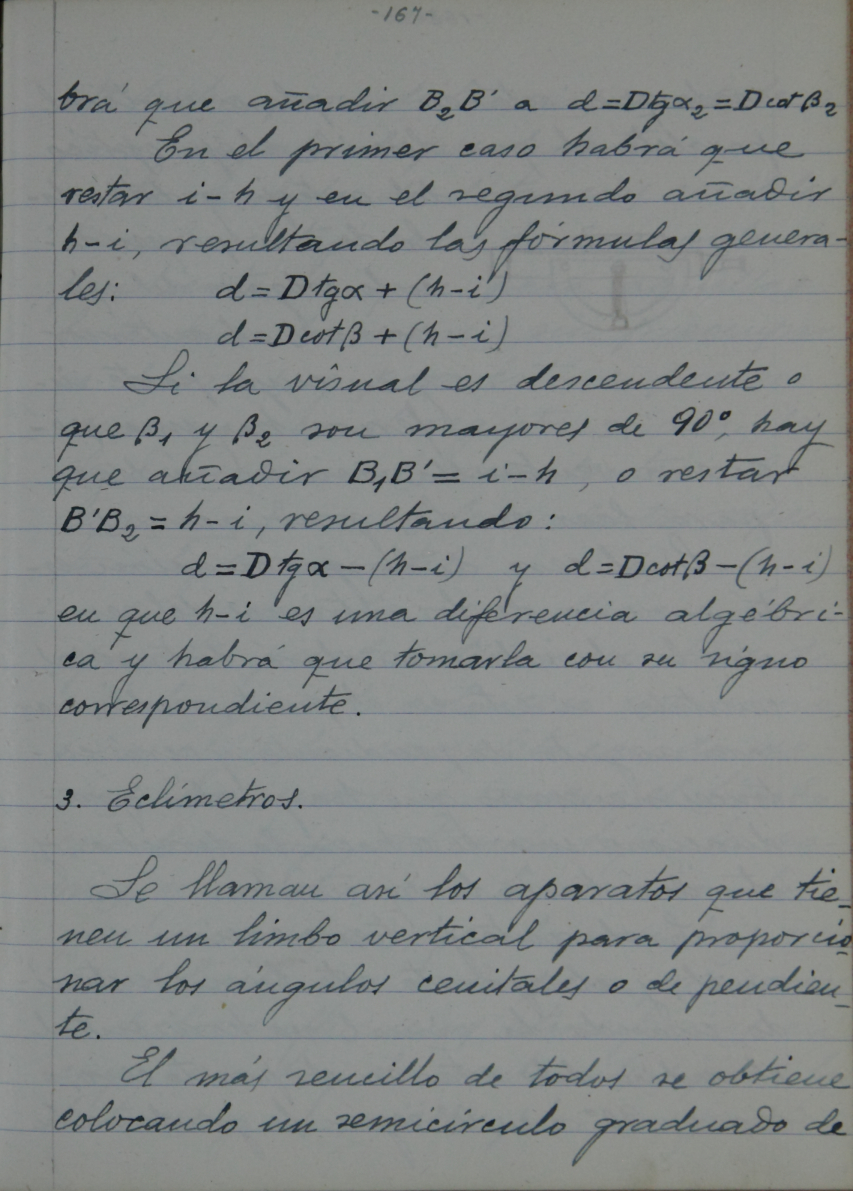 -167-
brá que añadir B₂B' a d=Dtgα₂=Dcotβ₂
En el primer caso habrá que
restar i-h y en el segundo añadir
h-i, resultando las fórmulas genera-
les: d=Dtgα+(h-i)
d=Dcotβ+(h-i)
Si la visual es descendente o
que β₁ y β₂ son mayores de 90°, hay
que añadir B₁B'=i-h, o restar
B'B₂=h-i, resultando:
d=Dtgα-(h-i) y d=Dcotβ-(h-i)
en que h-i es una diferencia algébri-
ca y habrá que tomarla con su signo
correspondiente.
3. Eclímetros.
Se llaman así los aparatos que tie-
nen un limbo vertical para proporcio-
nar los ángulos cenitales o de pendien-
te.
El más sencillo de todos se obtiene
colocando un semicírculo graduado de